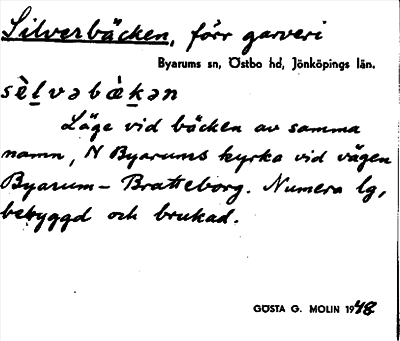 Silverbäcken, förr garveri
Byarums sn, Östbo hd, Jönköpings län.
sèḻvəbæ̀ḵən
Läge vid bäcken av samma
namn, N Byarums kyrka vid vägen
Byarum – Bratteborg. Numera lg,
bebyggd och brukad.
GÖSTA G. MOLIN 1948